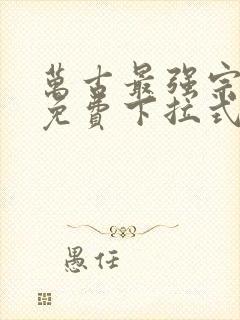 萬古最强宗
免費下拉式
愚任